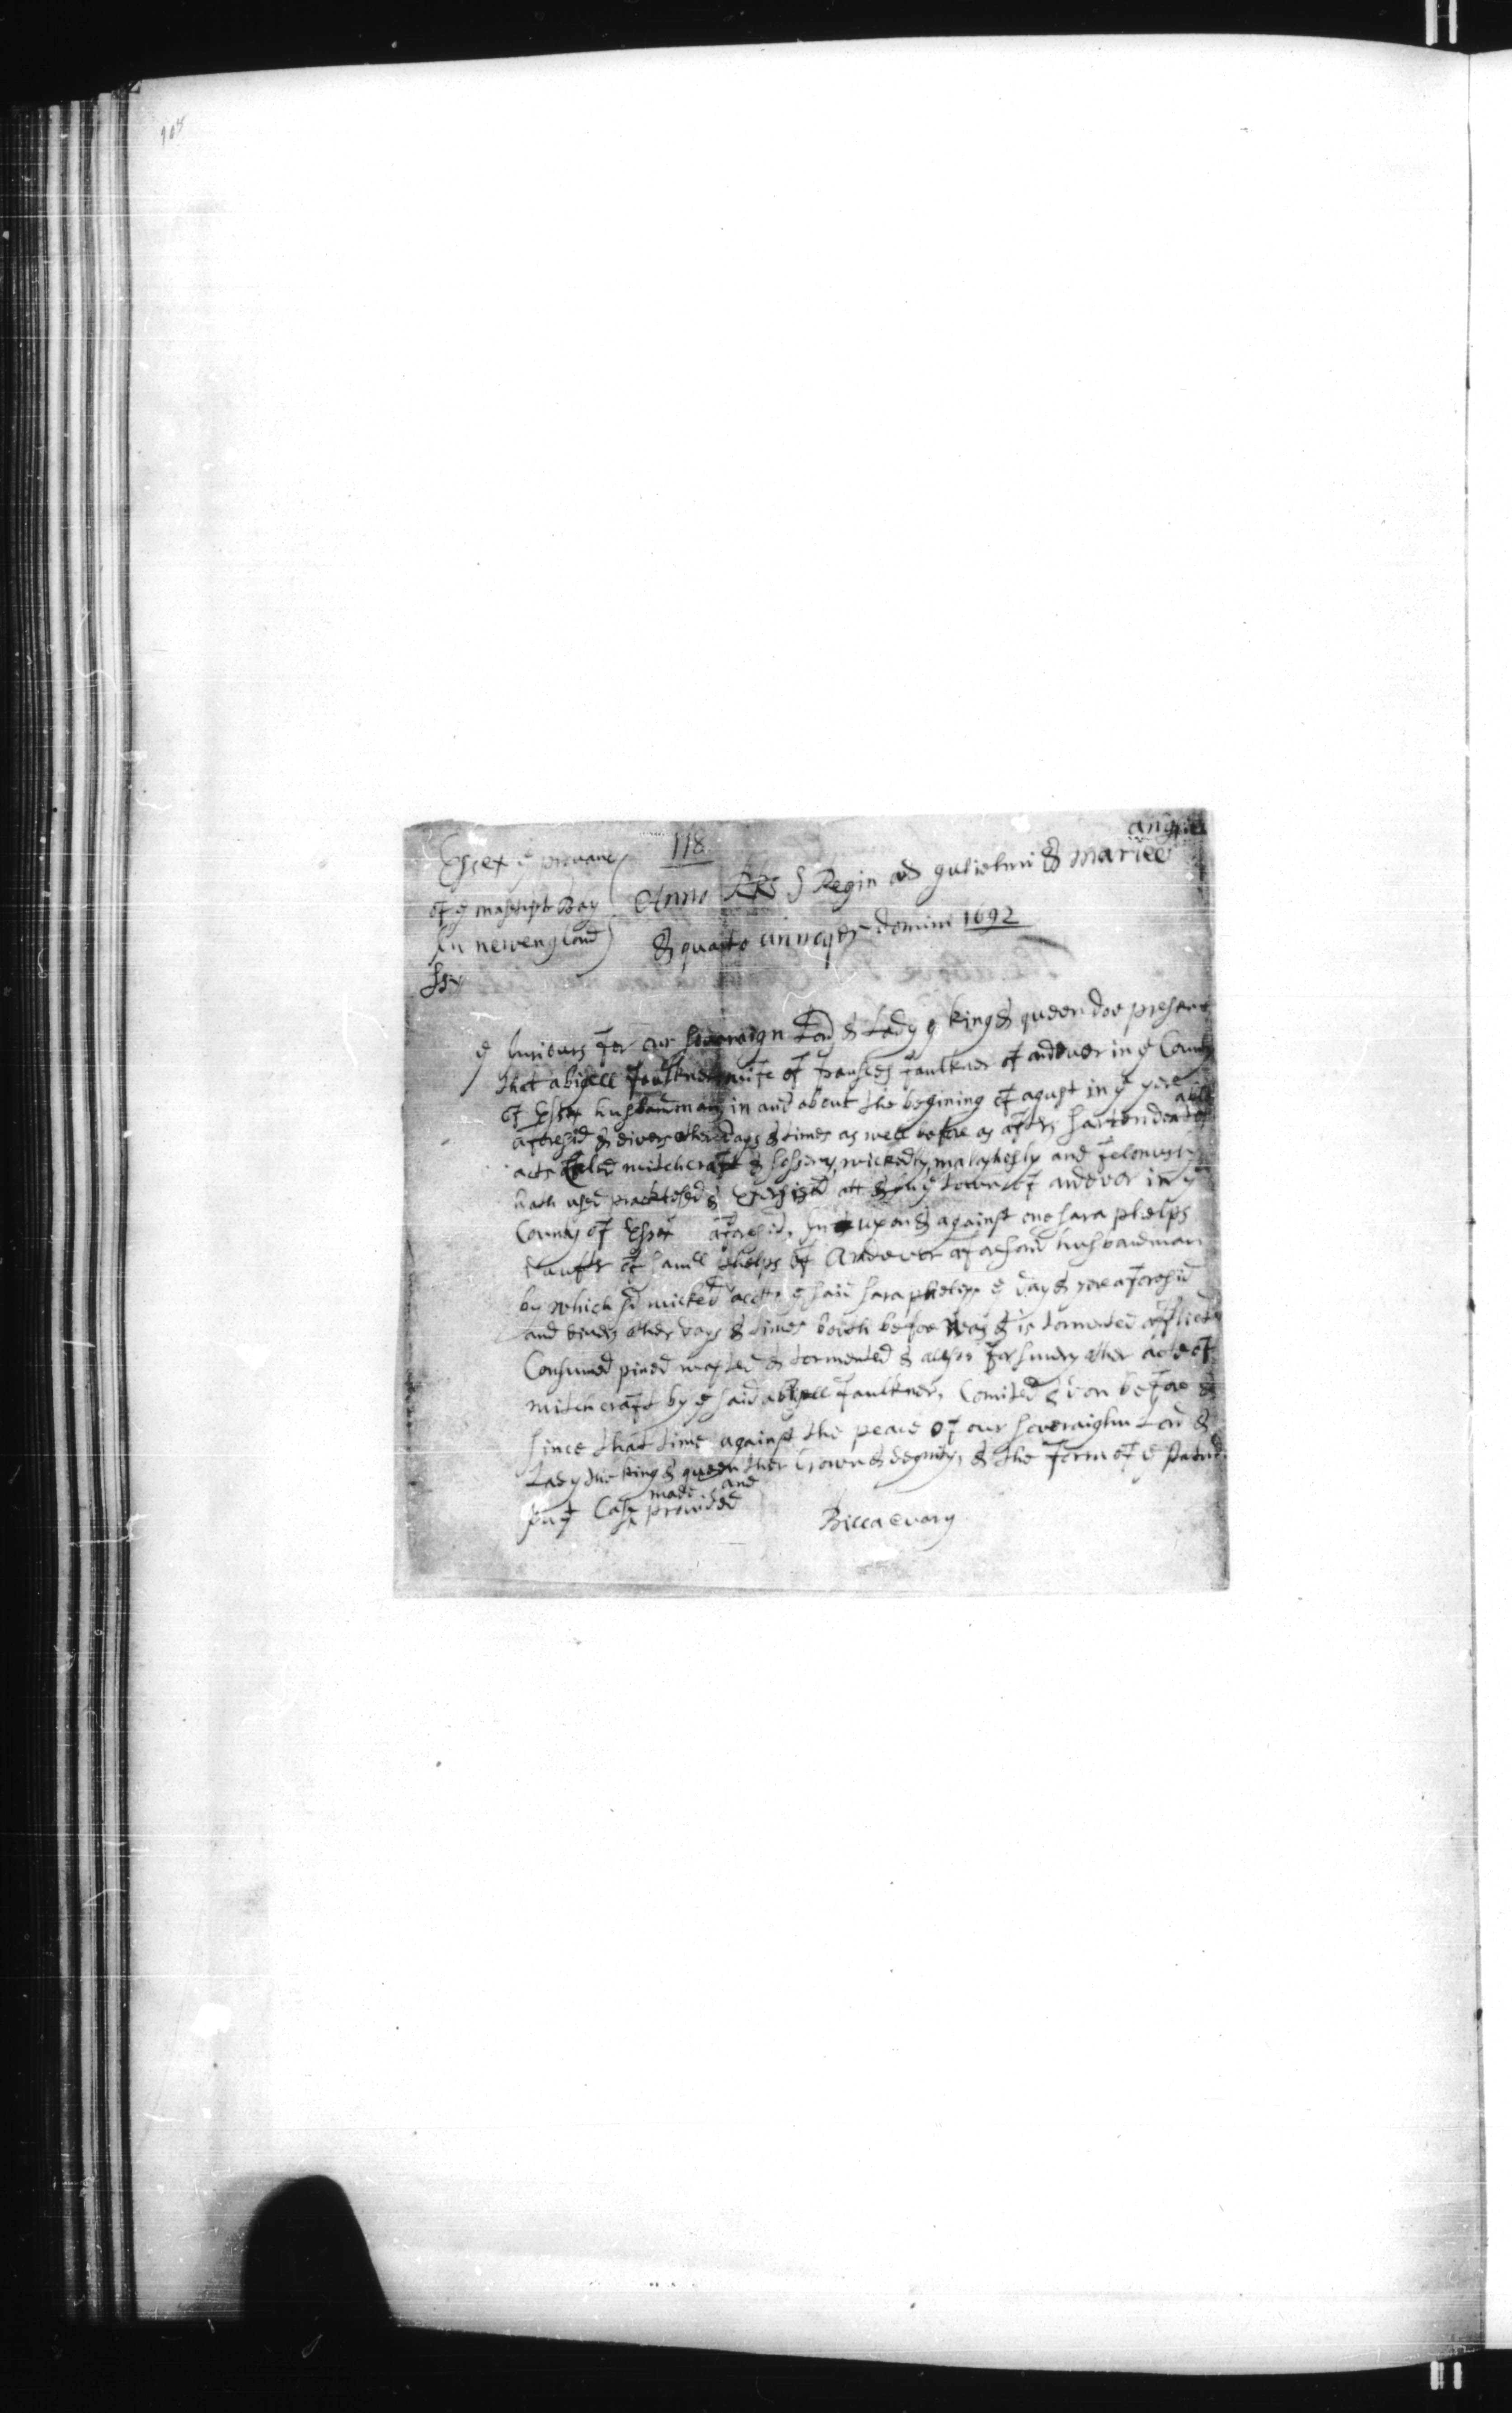 118
Essex ye prouanc
of ye masetusts Bay
In newengland
ss
angliee
Anno RRs & Regin ae gulielmi & mariee
& quarto annoqr domini 1692
ye Juriours for our soveraign Lord & Lady ye king & queen doe present
that abigell Faulkner wife of Fransces Faulkner of andever in ye County
of Essex husbandman in and about the begining of agust in ye yere
aforesid & divers other days & times as well before as after sarten detestable
acts Caled witchcraft & sossery, wickedly malaghesly and felonusly
hath used practesed & Exersised att & in ye towne of andover in ye
County of Essex aforesid, In upon & against one sara phelps
daufter of samll phelps of Andever aforesaid husbandman
by which sd wicked acctts ye said sara phelps ye day & yere aforesid
and divers other days & times booth before was & is tormented afflicted
Consumed pined wasted & tormented & allsoe for sundry other acts of
witchcraft by ye said abigell Faulkner, Comited & don before &
since that time against the peace of our soveraighn Lord &
Lady the king & queen ther Crown & degnity, & the Form of ye statud
in yt Case made and provided
Billa evary